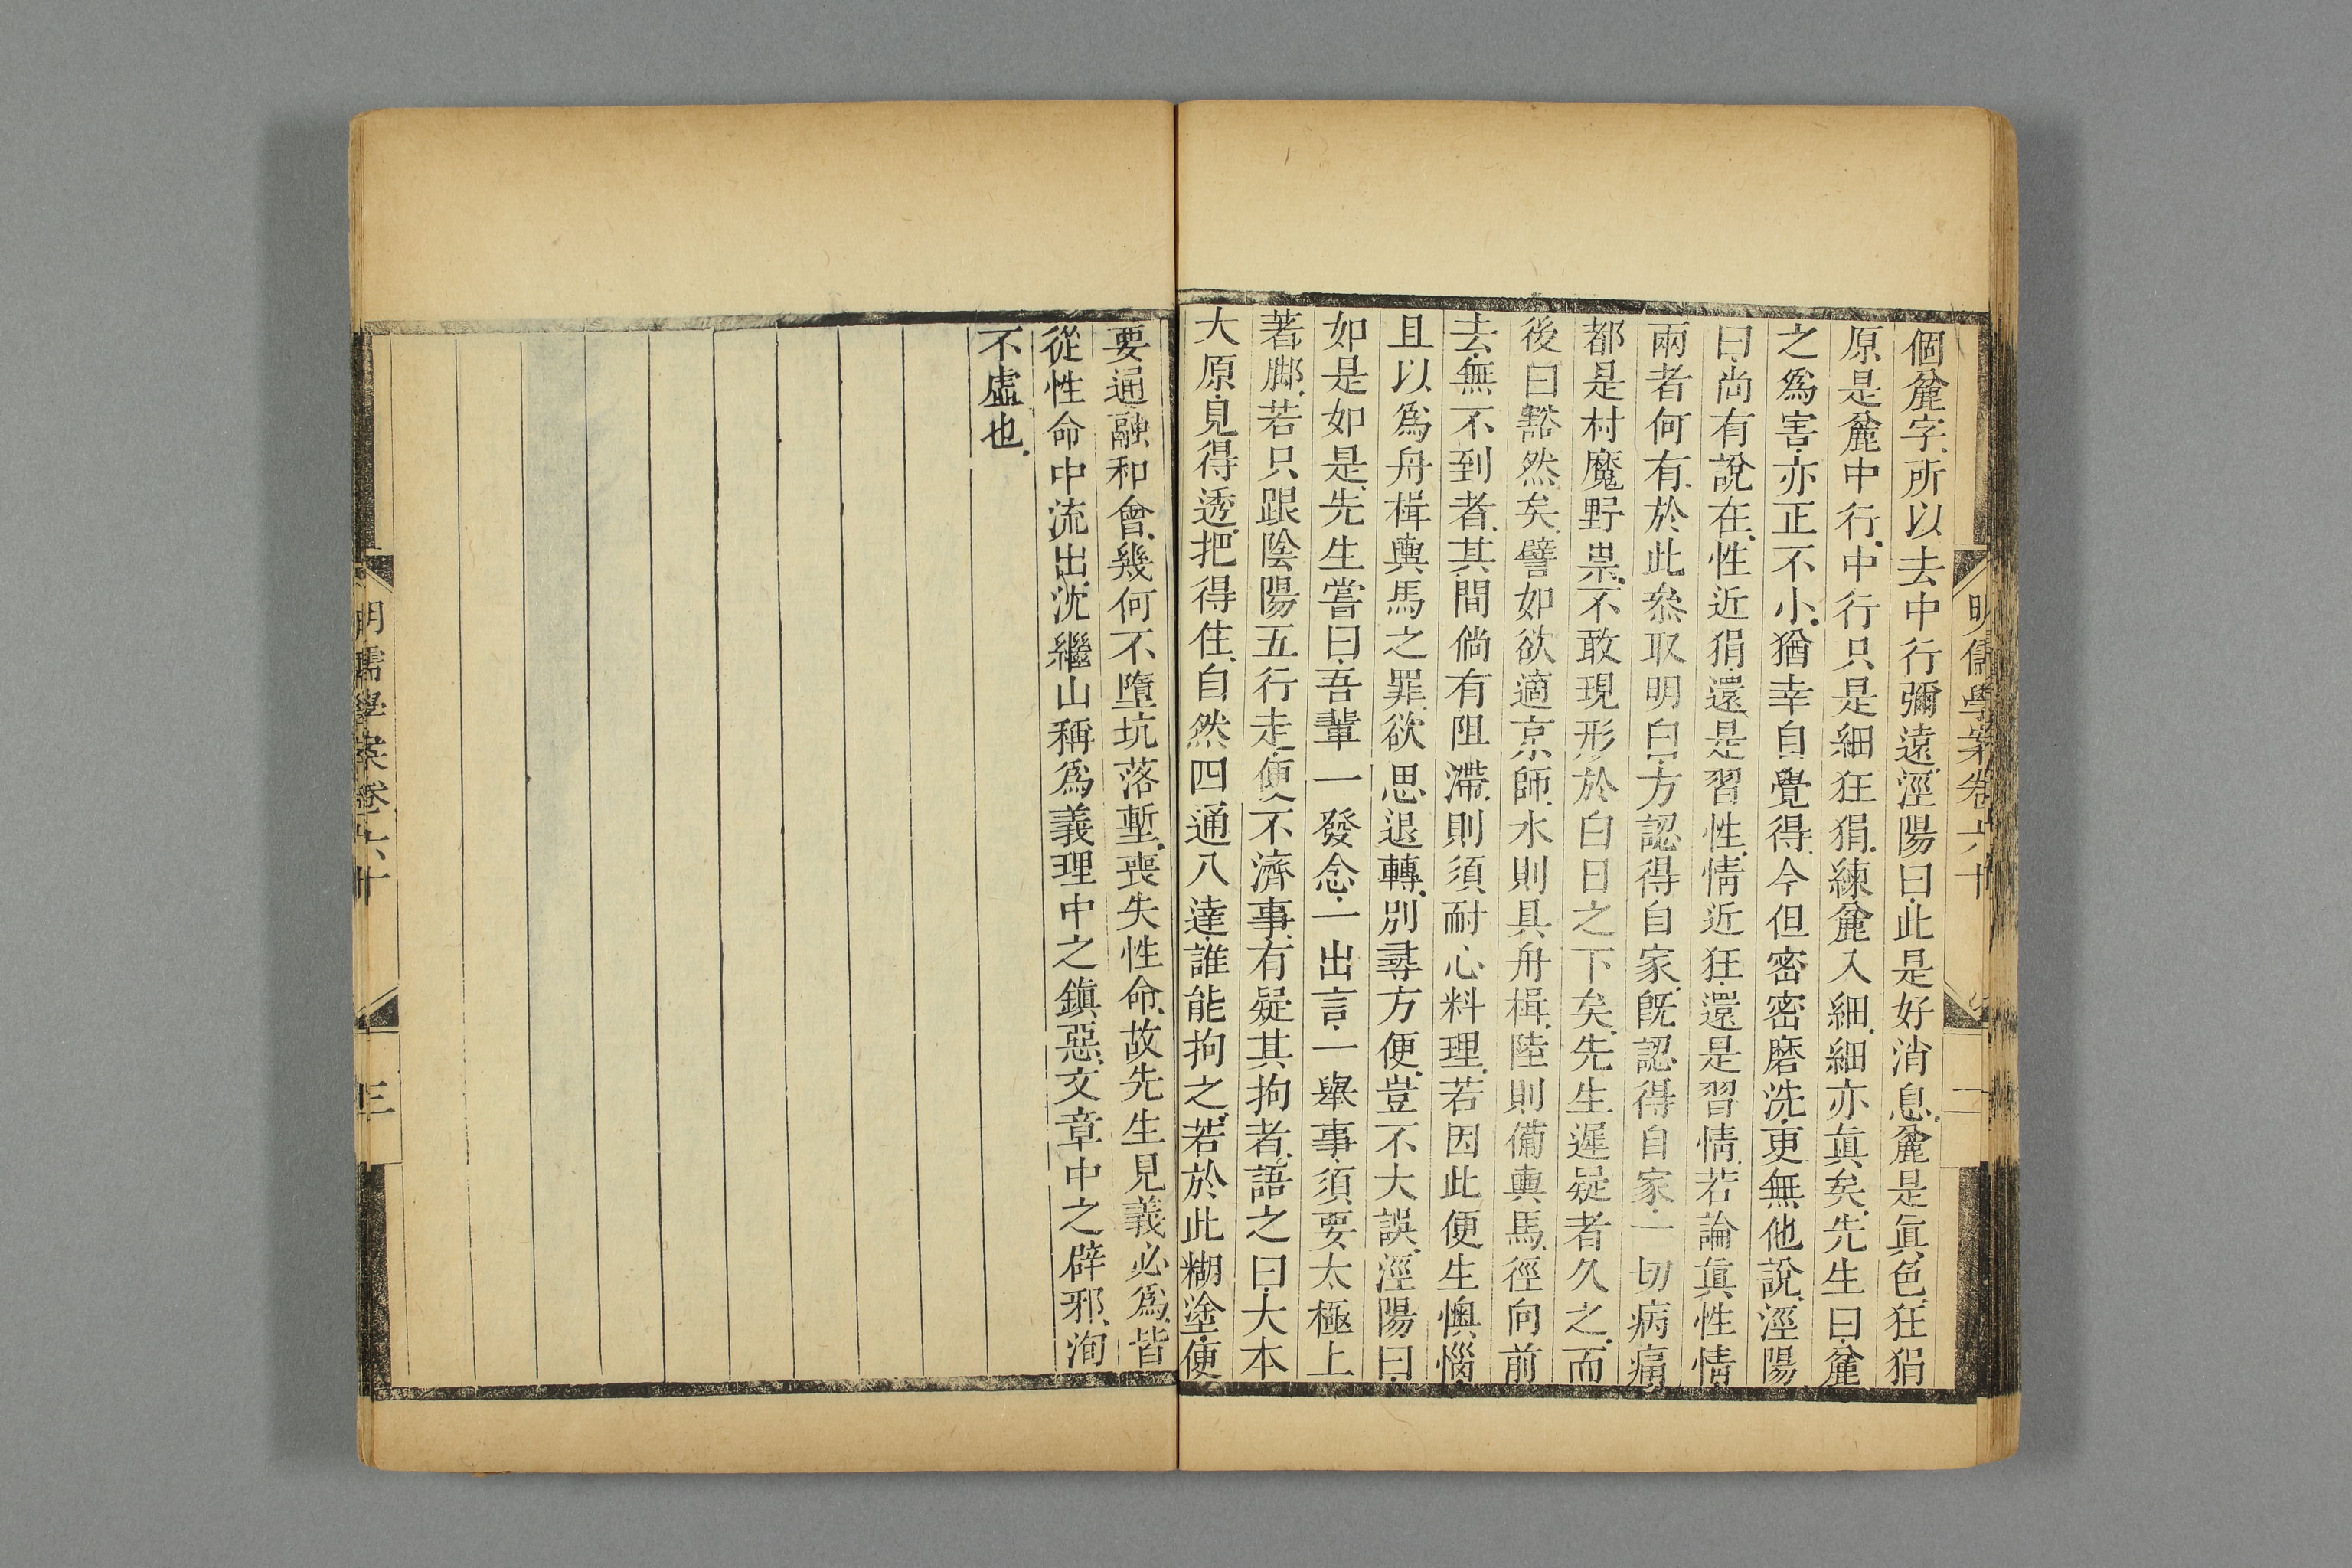 明儒學案卷六十
二
個麄字、所以去中行彌遠、涇陽曰、此是好消息、麄是眞色、狂狷
原是麄中行、中行只是細狂狷、練麄入細、細亦眞矣、先生曰、麄
之爲害、亦正不小、猶幸自覺得、今但密密磨洗、更無他說、涇陽
曰、尚有說在、性近狷、還是習性、情近狂、還是習情、若論眞性情
兩者何有、於此叅取明白、方認得自家、旣認得自家、一切病痛
都是村魔野祟、不敢現形於白日之下矣、先生遲疑者久之、而
後曰豁然矣、譬如欲適京師、水則具舟楫、陸則備輿馬、徑向前
去、無不到者、其間倘有阻滯、則須耐心料理、若因此便生懊惱、
且以爲舟楫輿馬之罪、欲思退轉、別尋方便、豈不大誤、涇陽曰、
如是如是、先生嘗曰、吾輩一發念、一出言、一舉事、須要太極上
著脚、若只跟陰陽五行走、便不濟事、有疑其拘者、語之曰、大本
大原、見得透、把得住、自然四通八達、誰能拘之、若於此糊塗、便
要通融和會、幾何不墮坑落塹、喪失性命、故先生見義必爲、皆
從性命中流出、沈繼山稱爲義理中之鎭惡、文章中之辟邪、洵
不虛也、
明儒學案卷六十
三